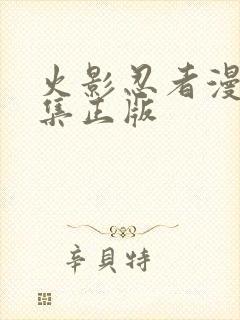 火影忍者漫
集正版
辛贝特